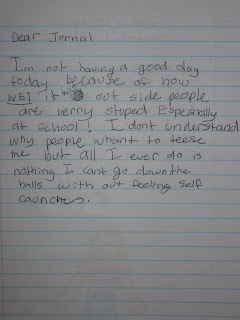 Dear Jornal
I'm not having a good day
today because of how
wet it was out side people
are verry stuped Espeshally
at school! I dont understand
why people whant to teese
me but all I ever do is
nothing I cant go down the
halls with out feeling self
caunchus.